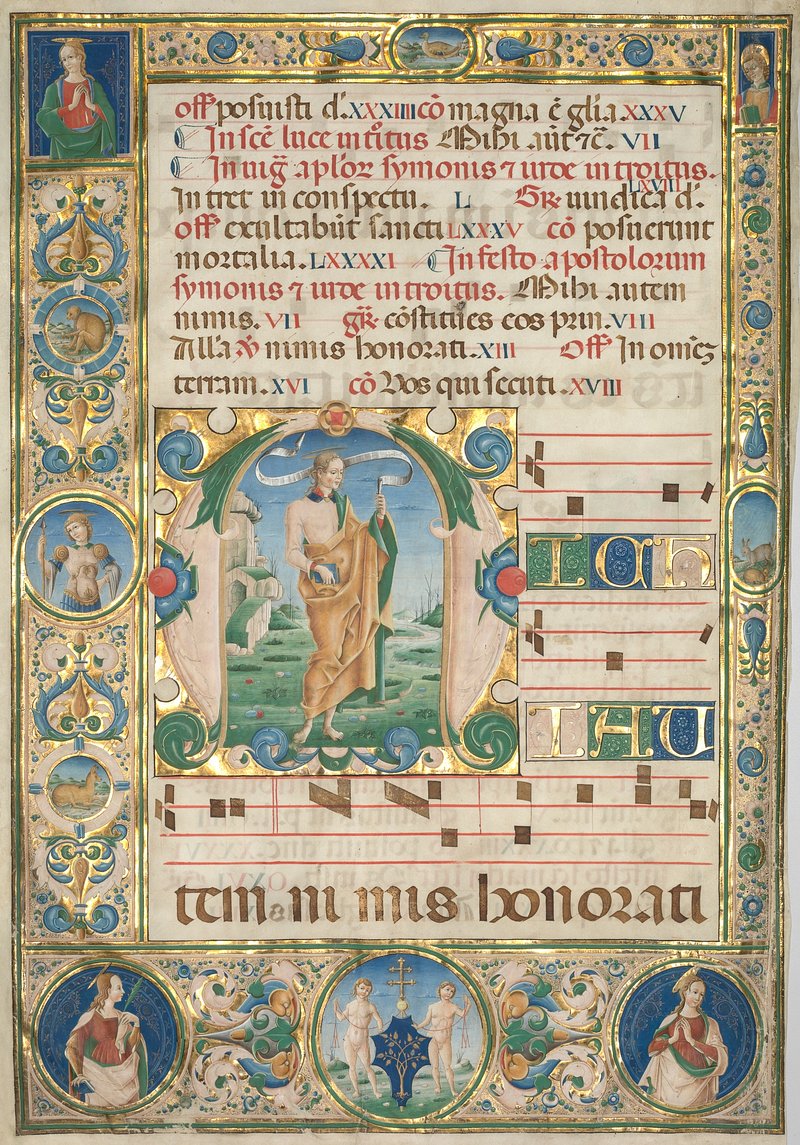 off posuisti d̄. XXXIII cō magna ē glīa. XXXV
In scē luce introitus Mihi aut̄ ⁊c̄. VII
In uiḡ aplōꝝ symonis ⁊ iude introitus.
Intret in conspectu. L Gr̄. uindica d̄. LXVIII
off exultabūt sancti LXXXV cō posuerunt
mortalia. LXXXXI In festo apostolorum
symonis ⁊ iude introitus. Mihi autem
nimis. VII gr̄. cōstitues eos prin. VIII
Alla ꝟ nimis honorati. XIII Off In omnē
terram. XVI cō Vos qui secuti. XVIII
M ICH
I AU
tem ni mis honorati